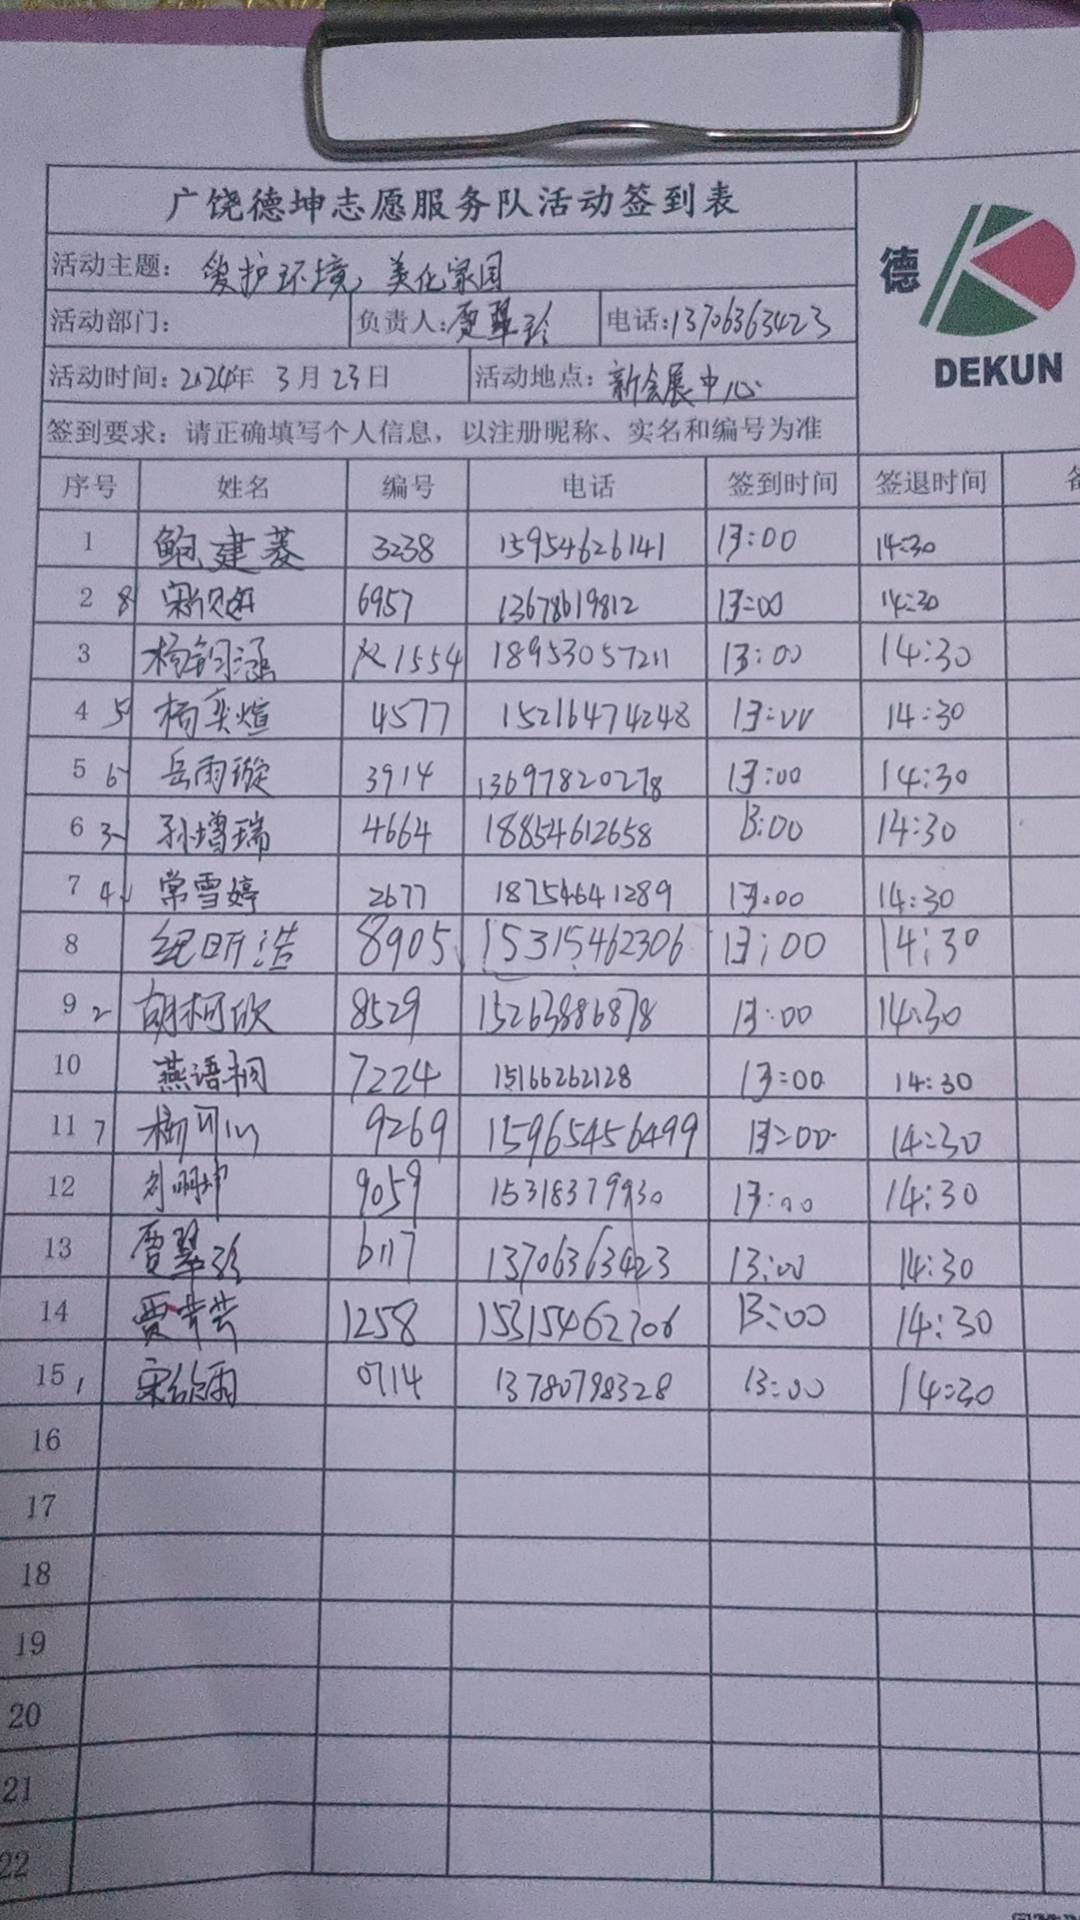 广饶德坤志愿服务队活动签到表
德
DEKUN
活动主题：爱护环境，美化家园
活动部门： 负责人：贾翠珍 电话：13706363423
活动时间：2024年 3月23日 活动地点：新会展中心
签到要求：请正确填写个人信息，以注册昵称、实名和编号为准
序号 姓名 编号 电话 签到时间 签退时间
1 鲍建菱 3238 15954626141 13:00 14:30
2 8 6957 13678619812 13:00 14:30
3 杨钧涵 1554 18953057211 13:00 14:30
4 5 杨奕煊 4577 15216474248 13:00 14:30
5 6 岳雨璇 3914 13697820278 13:00 14:30
6 3 孙增瑞 4664 18854612658 13:00 14:30
7 4 常雪婷 2677 18754641289 13:00 14:30
8 纪昕浩 8905 15315462306 13:00 14:30
9 2 胡柯欣 8529 15263886878 13:00 14:30
10 燕语桐 7224 15166262128 13:00 14:30
11 7 9269 15965456499 13:00 14:30
12 刘明坤 9059 15318379930 13:00 14:30
13 贾翠珍 6117 13706363423 13:00 14:30
14 1258 13:00 14:30
15 1 0714 13780798328 13:00 14:30
16
17
18
19
20
21
22